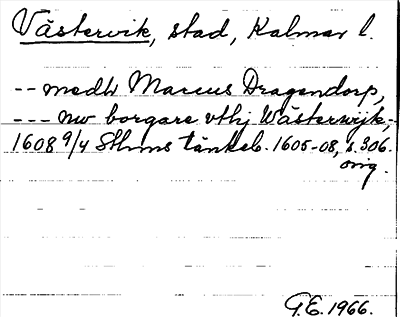 Västervik, stad, Kalmar l.
-- medh Marcus Dragendorp,
--- nw borgare vthj Wästerwijk, -
1608 9/4 Sthms tänkeb. 1605-08, s. 306.
orig.
G.E. 1966.